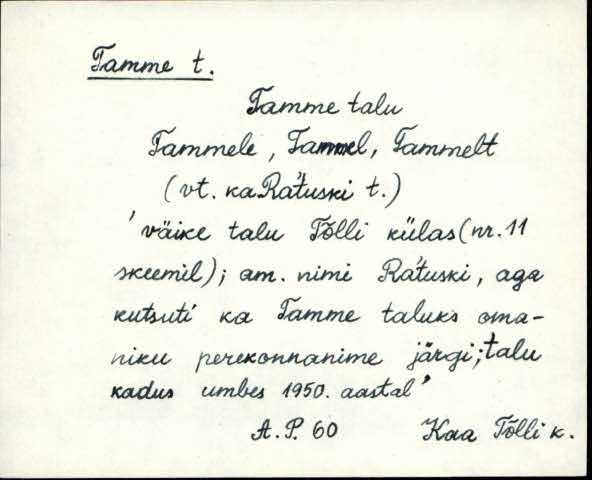 Tamme t.
Tamme talu
Tammele, Tammel, Tammelt
(vt. ka Rátuski t.)
'väike talu Tõlli külas (nr. 11
skeemil); am. nimi Rátuski, aga
kutsuti ka Tamme taluks oma-
niku perekonnanime järgi; talu
kadus umbes 1950. aastal'
A. P. 60 Kaa Tõlli k.